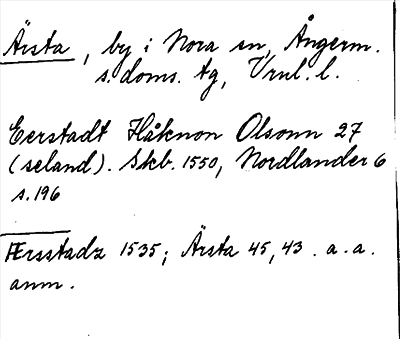 Ärsta, by i Nora sn, Ångerm.
s. doms. tg, Vrnl. l.
Eerstadt Håknon Olsonn 27
(seland). Skb. 1550, Nordlander 6
s. 196
Ærsstadz 1535; Ärsta 45, 43 . a. a.
anm.